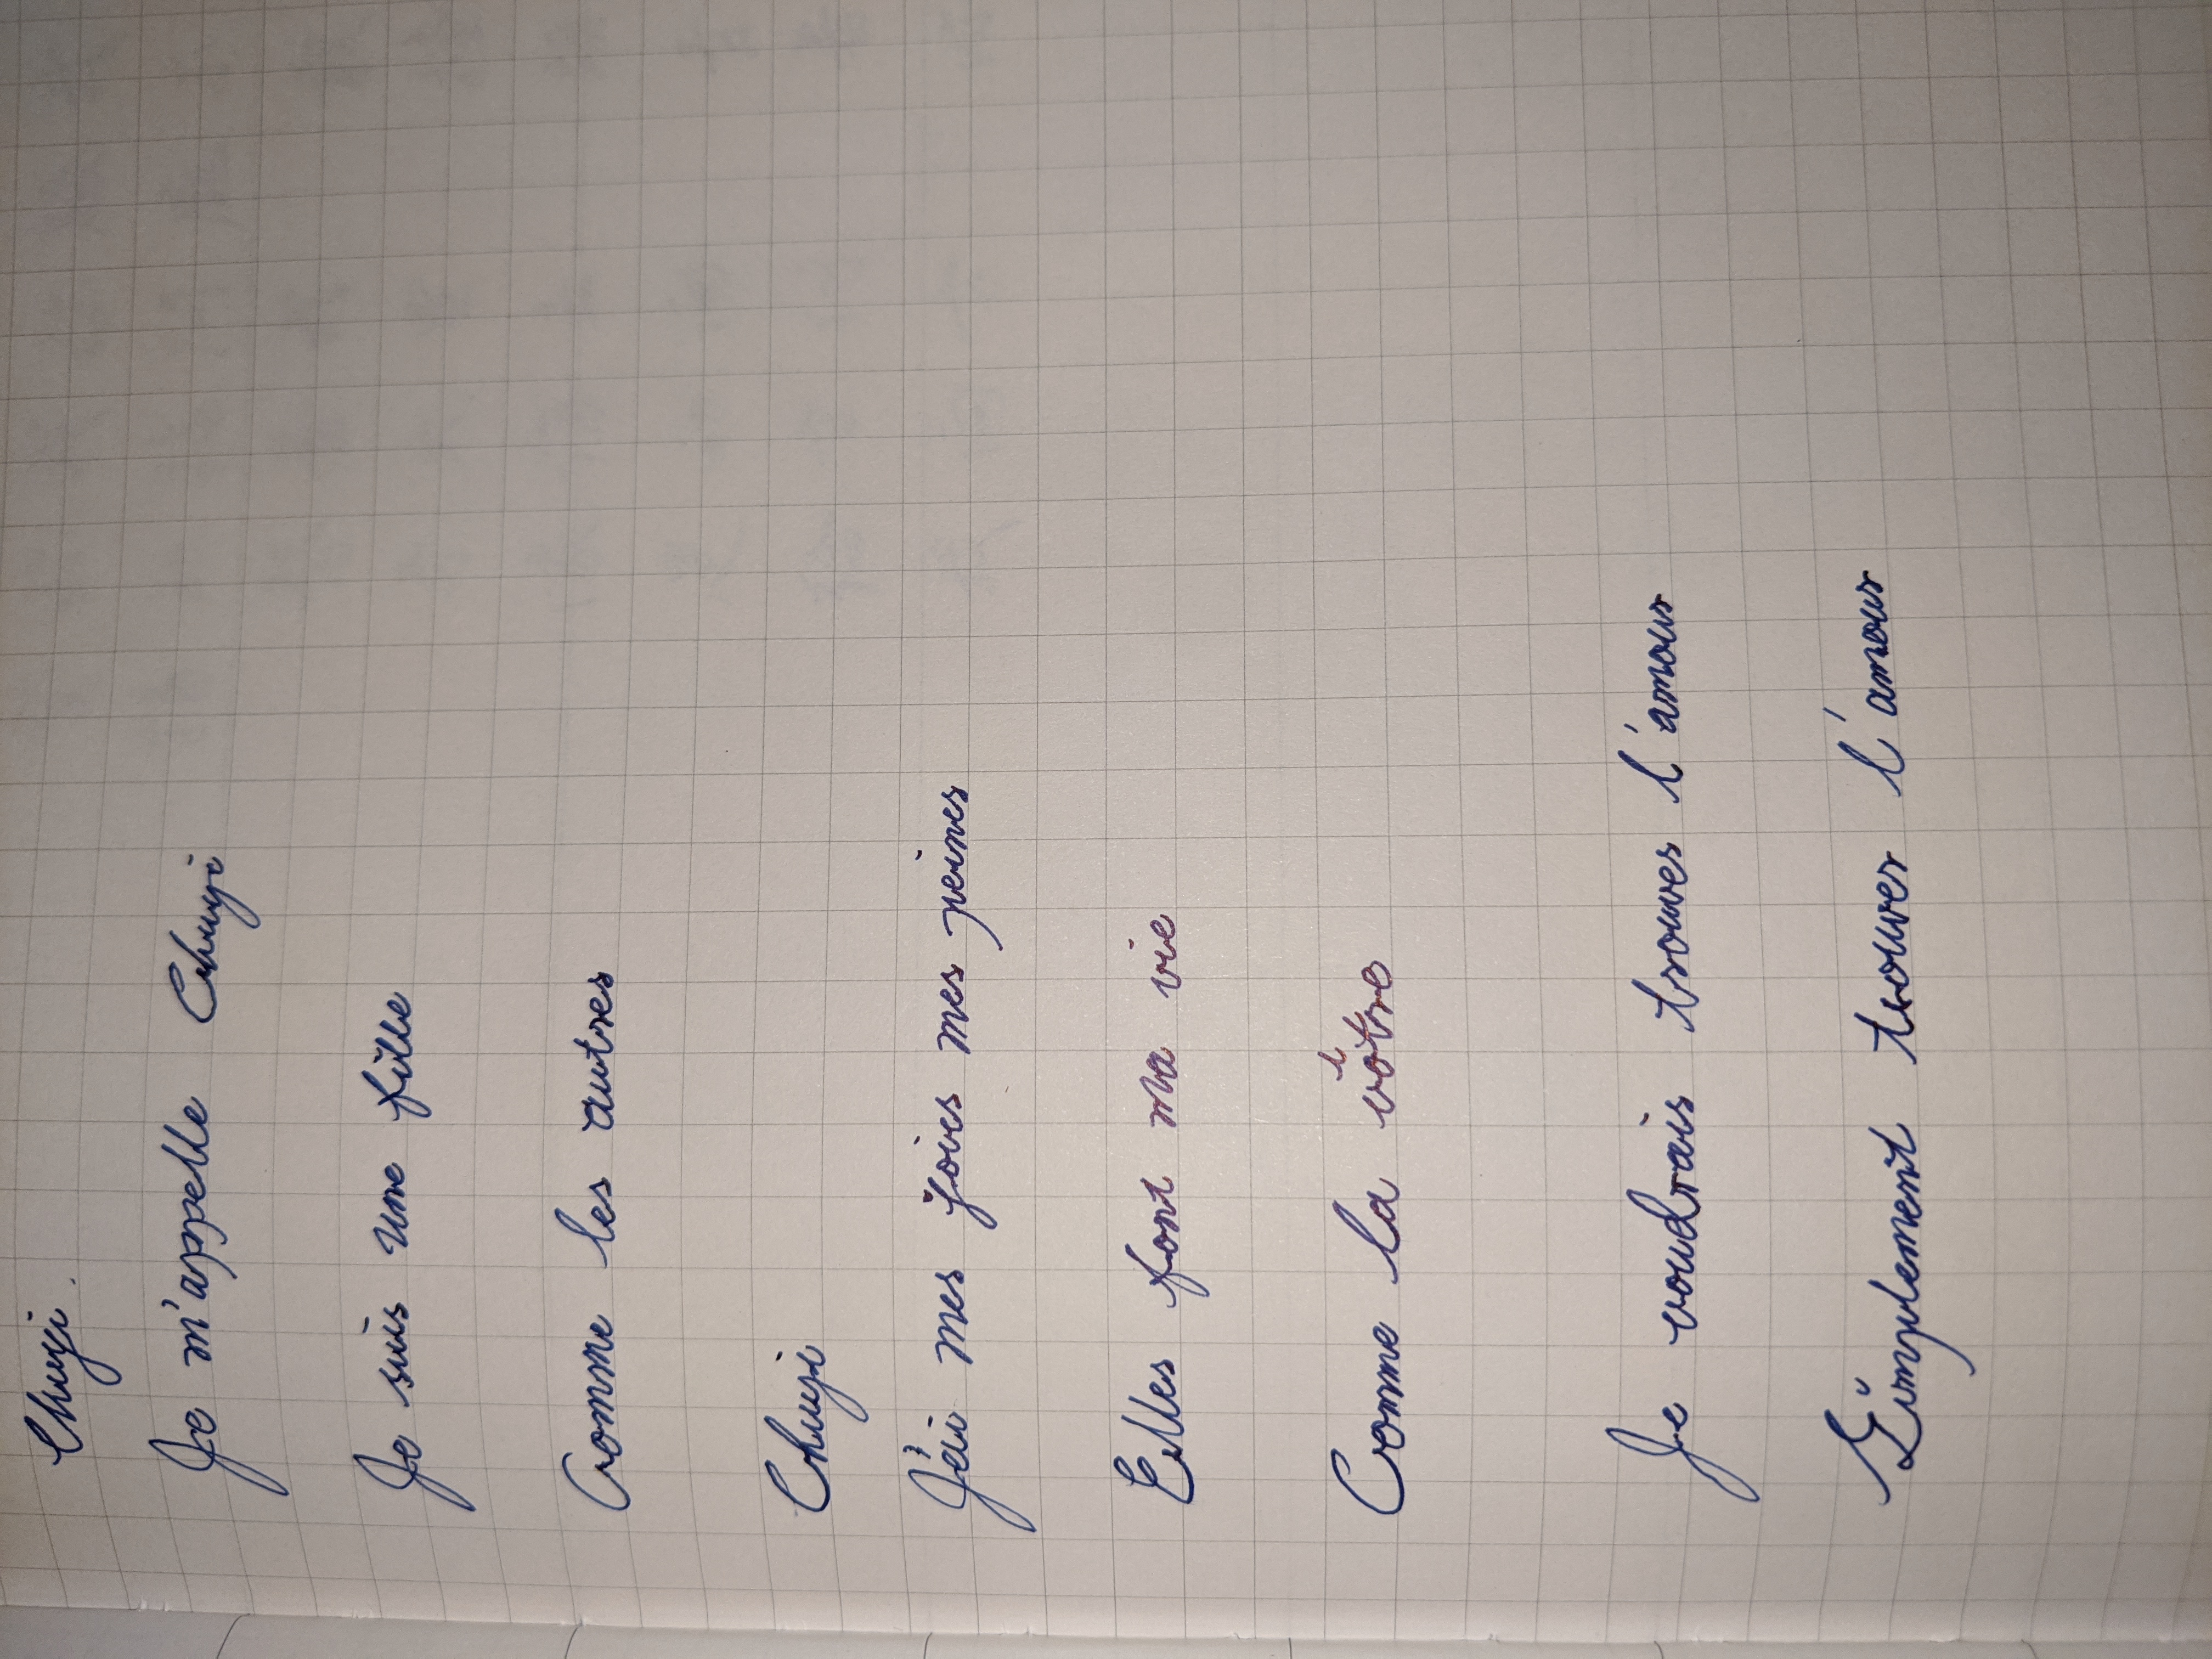 Chuyi.
Je m'appelle Chuyi
Je suis une fille
Comme les autres
Chuyi
J'ai mes joies mes peines
Elles font ma vie
Comme la vôtre
Je voudrais trouver l'amour
Simplement trouver l'amour